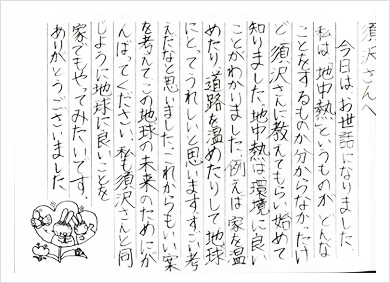 須沢さんへ
今日はお世話になりました。
私は「地中熱」というものが、どんな
ことをするものか分からなかったけ
ど、須沢さんに教えてもらい始めて
知りました。地中熱は環境に良い
ことがわかりました。例えば家を温
めたり、道路を温めたりして地球
にとってうれしいと思います。すごい考
えだなと思いました。これからもいい案
を考えてこの地球の未来のためにが
んばってください。私も須沢さんと同
じように地球に良いことを
家でもやってみたいです。
ありがとうございました。